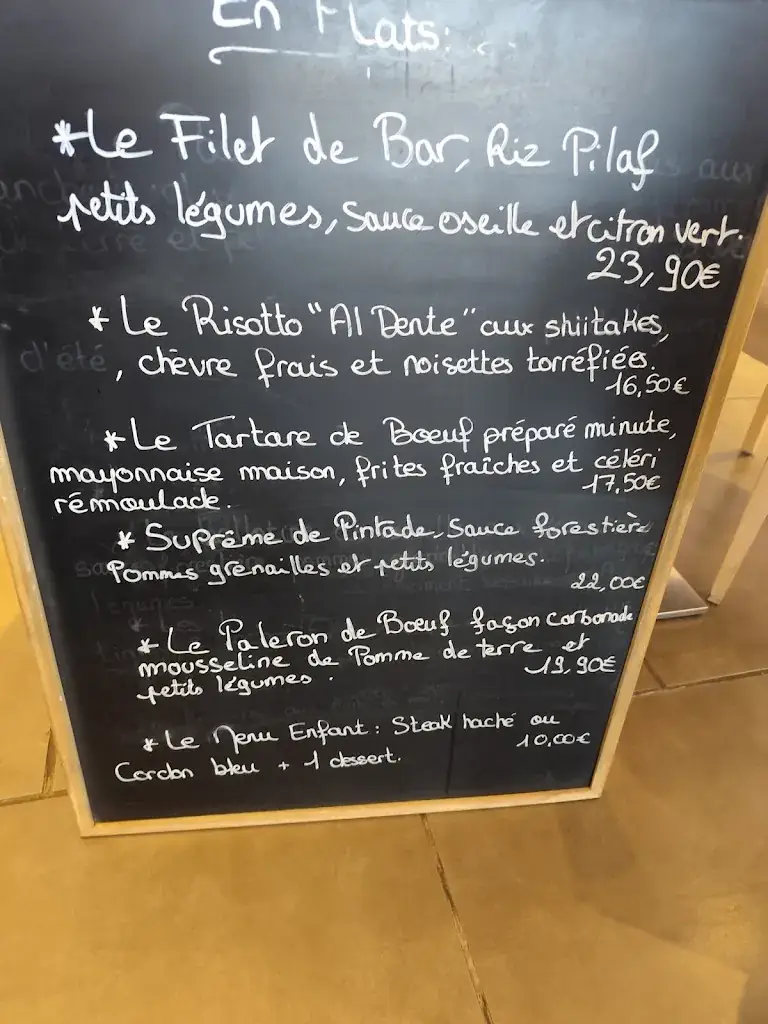 En Plats:
*Le Filet de Bar, Riz Pilaf
petits légumes, Sauce oseille et citron vert.
23,90€
* Le Risotto "Al Dente" aux shiitakes,
d'été, chèvre frais et noisettes torréfiées.
16,50€
* Le Tartare de Bœuf préparé minute,
mayonnaise maison, frites fraîches et céléri
17,50€
rémoulade.
* Suprême de Pintade, Sauce forestière
Pommes grenailles et petits légumes.
22,00€
* Le Paleron de Bœuf façon carbonade
mousseline de Pomme de terre et
19,90€
petits légumes.
* Le Menu Enfant : Steak haché ou
10,00€
Cordon bleu + 1 dessert.